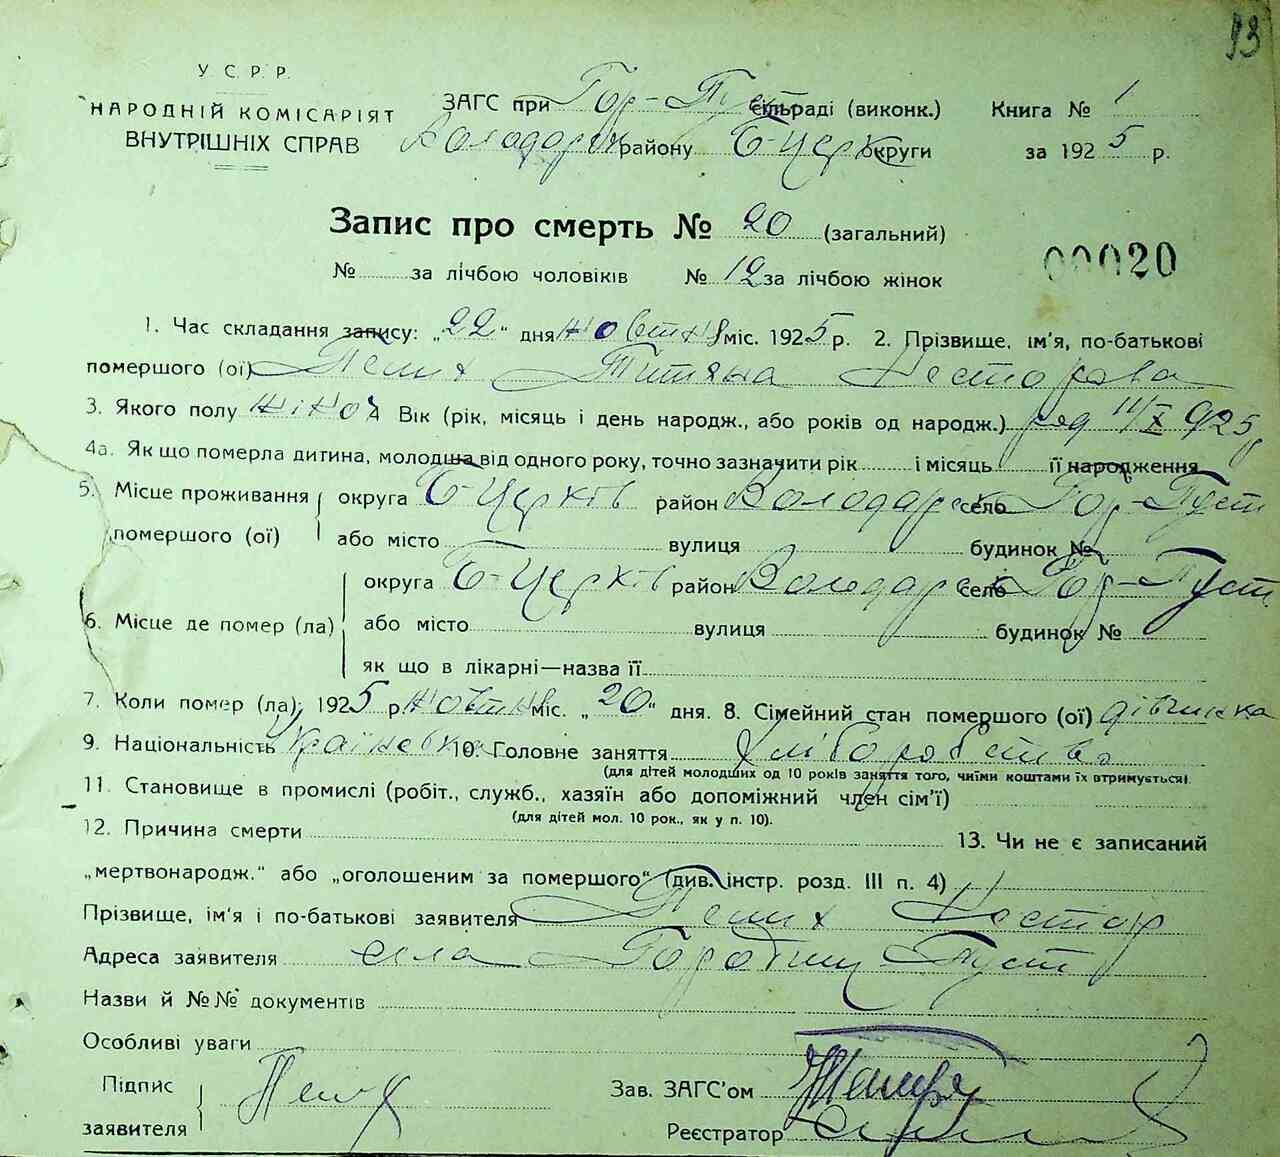 93
У. С. Р. Р.
НАРОДНІЙ КОМІСАРІЯТ
ВНУТРІШНІХ СПРАВ
ЗАГС при Гор-Пуст сільраді (виконк.) Книга № 1
Володарськ району Б-Церк округи за 1925 р.
Запис про смерть № 20 (загальний)
00020
№ за лічбою чоловіків № 12 за лічбою жінок
1. Час складання запису: „22" дня жовтня міс. 1925 р. 2. Прізвище, ім'я, по-батькові
помершого (ої) Тетяна Несторова
3. Якого полу жіноч 4 Вік (рік, місяць і день народж., або років од народж.) род 11/X 925
4а. Як що померла дитина, молодша від одного року, точно зазначити рік і місяць її народження
5. Місце проживання помершого (ої) округа Б-Церків район Володарськ село Гор-Пуст
або місто вулиця будинок №
6. Місце де помер (ла) округа Б-Церків район Володарськ село Гор-Пуст
або місто вулиця будинок №
як що в лікарні—назва її
7. Коли помер (ла): 1925 р жовтня міс. „20" дня. 8. Сімейний стан помершого (ої) дівчинка
9. Національність Українка 10. Головне заняття Хліборобство
(для дітей молодших од 10 років заняття того, чиїми коштами їх втримується)
11. Становище в промислі (робіт., служб., хазяїн або допоміжний член сім'ї)
(для дітей мол. 10 рок., як у п. 10).
12. Причина смерти 13. Чи не є записаний
„мертвонародж." або „оголошеним за помершого" (див. інстр. розд. III п. 4)
Прізвище, ім'я і по-батькові заявителя Нестор
Адреса заявителя села Городищ Пуст
Назви й №№ документів
Особливі уваги
Підпис
заявителя
Зав. ЗАГС'ом
Реєстратор